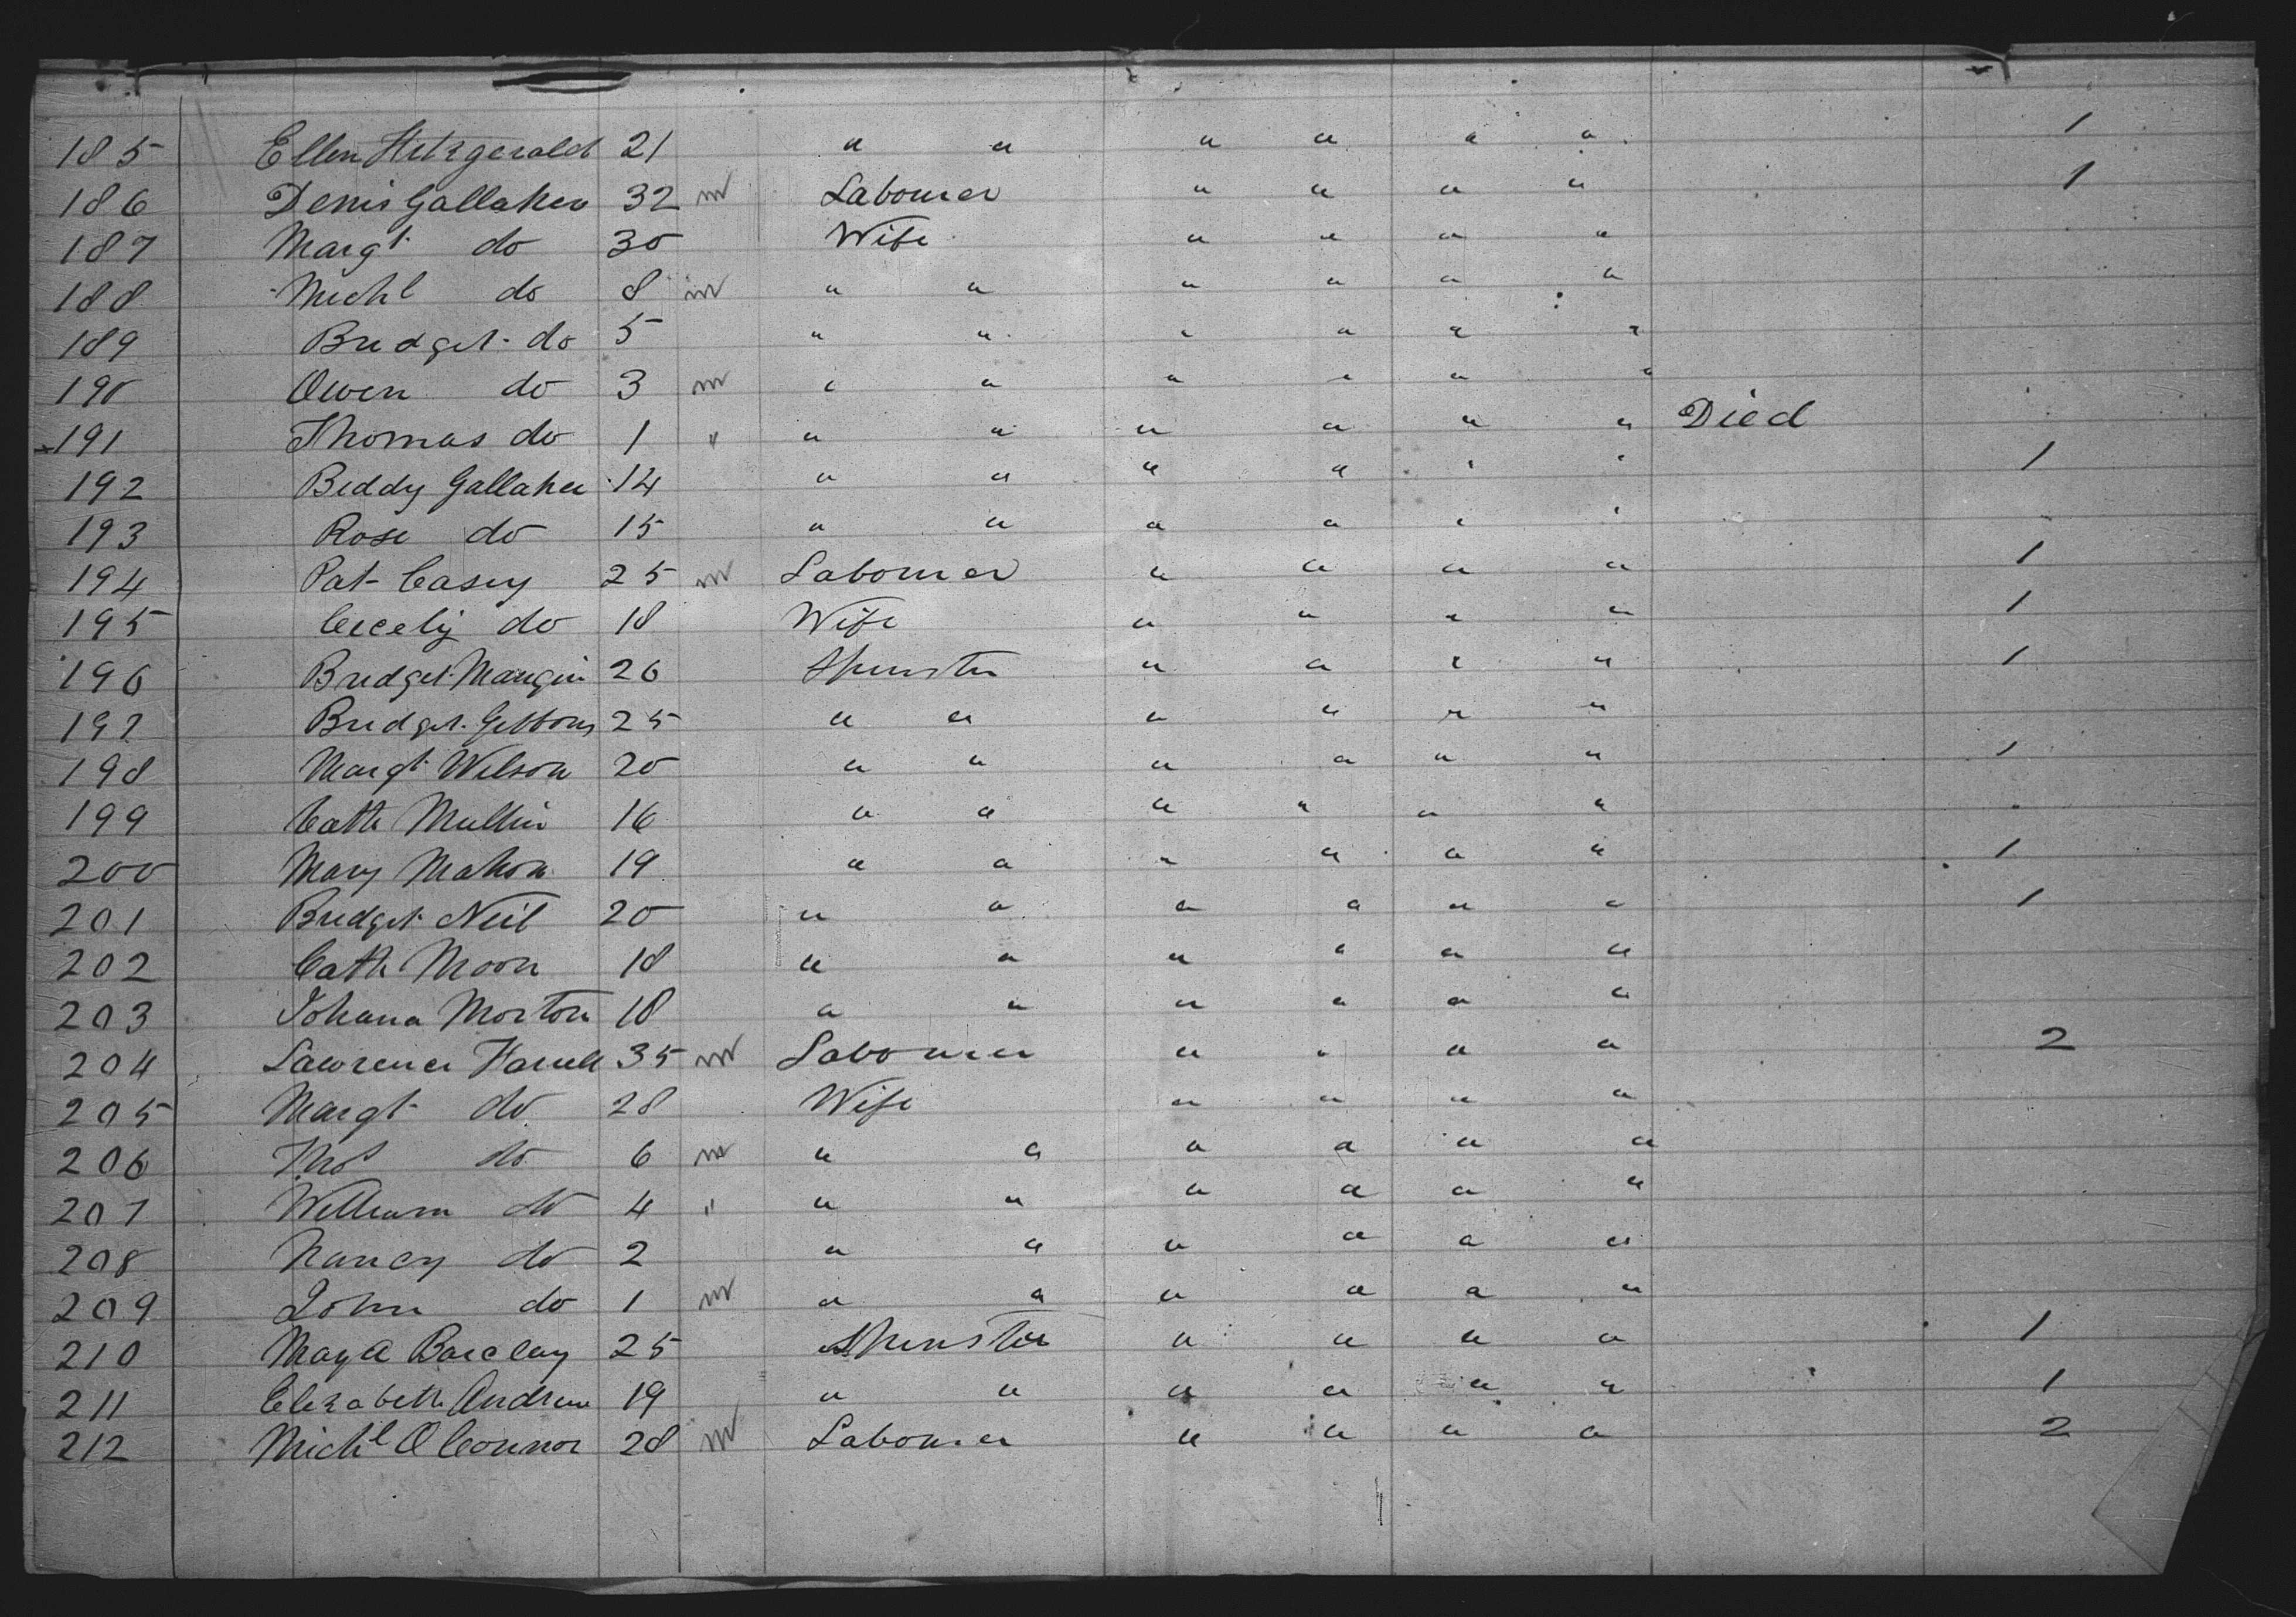 185 Ellen Fitzgerald 21 " " " " " " 1
186 Denis Gallaher 32 m Labourer " " " " 1
187 Margt do 30 Wife " " " "
188 Michl do 8 m " " " " " "
189 Bridget do 5 " " " " " "
190 Owen do 3 m " " " " " "
191 Thomas do 1 " " " " " " " Died
192 Biddy Gallaher 14 " " " " " " 1
193 Rose do 15 " " " " " "
194 Pat Casey 25 m Labourer " " " " 1
195 Cicely do 18 Wife " " " " 1
196 Bridget Mangin 26 Spinster " " " " 1
197 Bridget Gibbons 25 " " " " " "
198 Margt Wilson 20 " " " " " " 1
199 Cath Mullin 16 " " " " " "
200 Mary Mahon 19 " " " " " " 1
201 Bridget Neil 20 " " " " " " 1
202 Cath Moon 18 " " " " " "
203 Johana Morton 18 " " " " " "
204 Lawrence 35 m Labourer " " " " 2
205 Margt do 28 Wife " " " "
206 Thos do 6 m " " " " " "
207 William do 4 " " " " " " "
208 Nancy do 2 " " " " " "
209 John do 1 m " " " " " "
210 Mary A Barclay 25 Spinster " " " " 1
211 Elizabeth Andrew 19 " " " " " " 1
212 Michl O Connor 28 m Labourer " " " " 2